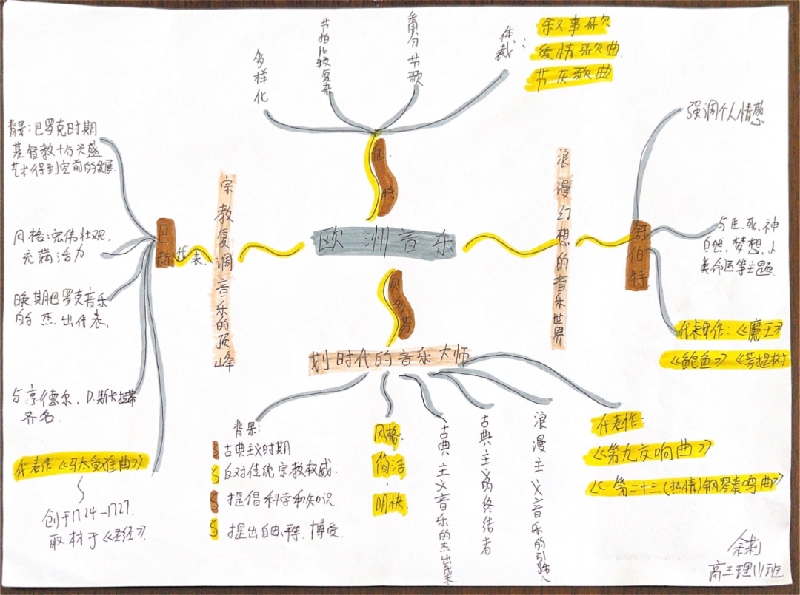 欧洲音乐
多样化
节拍比较复杂
体裁:
叙事歌
爱情歌曲
节庆歌曲
宗教复调音乐的顶峰
背景:巴罗克时期
基督教十分兴盛
艺术得到空前的发展
风格:宏伟壮观,
充满活力
晚期巴罗克音乐
的杰出代表.
与亨德尔、D.斯卡拉蒂
齐名.
代表作《马太受难曲》
创于1724-1727.
取材于《圣经》
浪漫幻想的音乐世界
舒伯特
强调个人情感
与生,死,神
自然,梦想,人
类命运等主题.
代表作:《魔王》
《鳟鱼》《菩提树》
贝多芬
划时代的音乐大师
背景:
古典主义时期
反对传统宗教权威
提倡科学和知识
提出自由、平等、博爱
风格:
简洁
明快
古典主义音乐的杰出
古典主义的终结者
浪漫主义音乐的
代表作:
《第九交响曲》
《第二十三(热情)钢琴奏鸣曲》
高三理(1)班